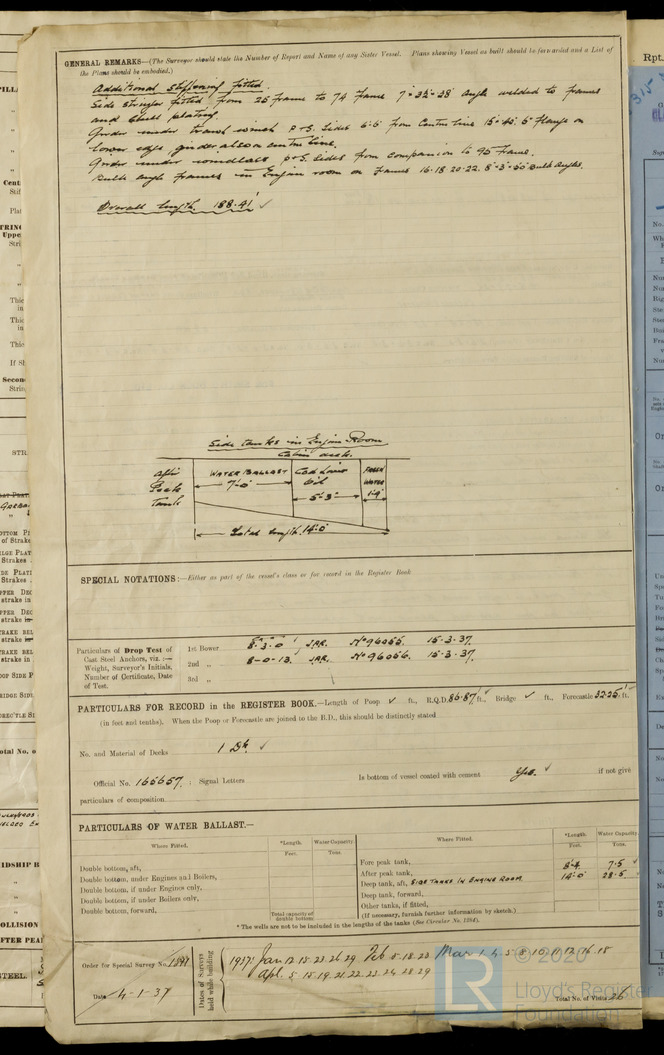 GENERAL REMARKS—(The Surveyor should state the Number of Report and Name of any Sister Vessel. Plans showing Vessel as built should be forwarded and a List of
the Plans should be embodied.)
Additional stiffening fitted
Side stringer fitted from 25 frame to 74 frame 7" x 3½" x .38 angle welded to frames
and shell plating.
Girder under trawl winch P & S. sides 6'-6" from centre line 15" x .45. 6" flange on
lower edge girder also on centre line.
Girder under P & S. sides from companion to 95 frame.
Bulb angle frames in Engine room on frames 16.18.20.22. Bulb Angles.
Overall length. 188.41' ✓
Side tanks in Engine Room.
Cabin deck.
After
Peak
Tank
WATER BALLAST
7'-0"
Cod Liver
Oil
5'-3"
FRESH
WATER
1'-9"
Total length 14'-0"
SPECIAL NOTATIONS:—Either as part of the vessel's class or for record in the Register Book
Particulars of Drop Test of
Cast Steel Anchors, viz.:—
Weight, Surveyor's Initials,
Number of Certificate, Date
of Test.
1st Bower 8-3-0 J.R.R. No 96055. 15-3-37.
2nd " 8-0-13. J.R.R. No 96056. 15-3-37.
3rd "
PARTICULARS FOR RECORD in the REGISTER BOOK.—Length of Poop ✓ ft., R.Q.D. 86.87' ft., Bridge ✓ ft., Forecastle 32.25' ft.
(in feet and tenths). When the Poop or Forecastle are joined to the B.D., this should be distinctly stated
No. and Material of Decks 1 Dk. ✓
Official No. 165657. ; Signal Letters Is bottom of vessel coated with cement Yes. ✓ if not give
particulars of composition
PARTICULARS OF WATER BALLAST.—
Where Fitted. *Length. Water Capacity
Feet. Tons.
Double bottom, aft,
Double bottom, under Engines and Boilers,
Double bottom, if under Engines only,
Double bottom, if under Boilers only,
Double bottom, forward,
Total capacity of
double bottom.
Where Fitted. *Length. Water Capacity
Feet. Tons.
Fore peak tank,
After peak tank, 8'-4 7.5 ✓
Deep tank, aft, SIDE TANKS IN ENGINE ROOM 14'-0" 28.5 ✓
Deep tank, forward,
Other tanks, if fitted,
(If necessary, furnish further information by sketch.)
* The wells are not to be included in the lengths of the tanks (See Circular No. 1284).
Order for Special Survey No.
Date 4-1-37
Dates of Surveys
held while building
1937: Jan 12 15 23 26 29 Feb 5.18.23 Mar 1.4.5 8 10 11 12 16.18
Apl. 5 15 19.21.22 23.24 28.29
Total No. of Visits 26
© 2020
LR
Lloyd's Register
Foundation
Rpt.